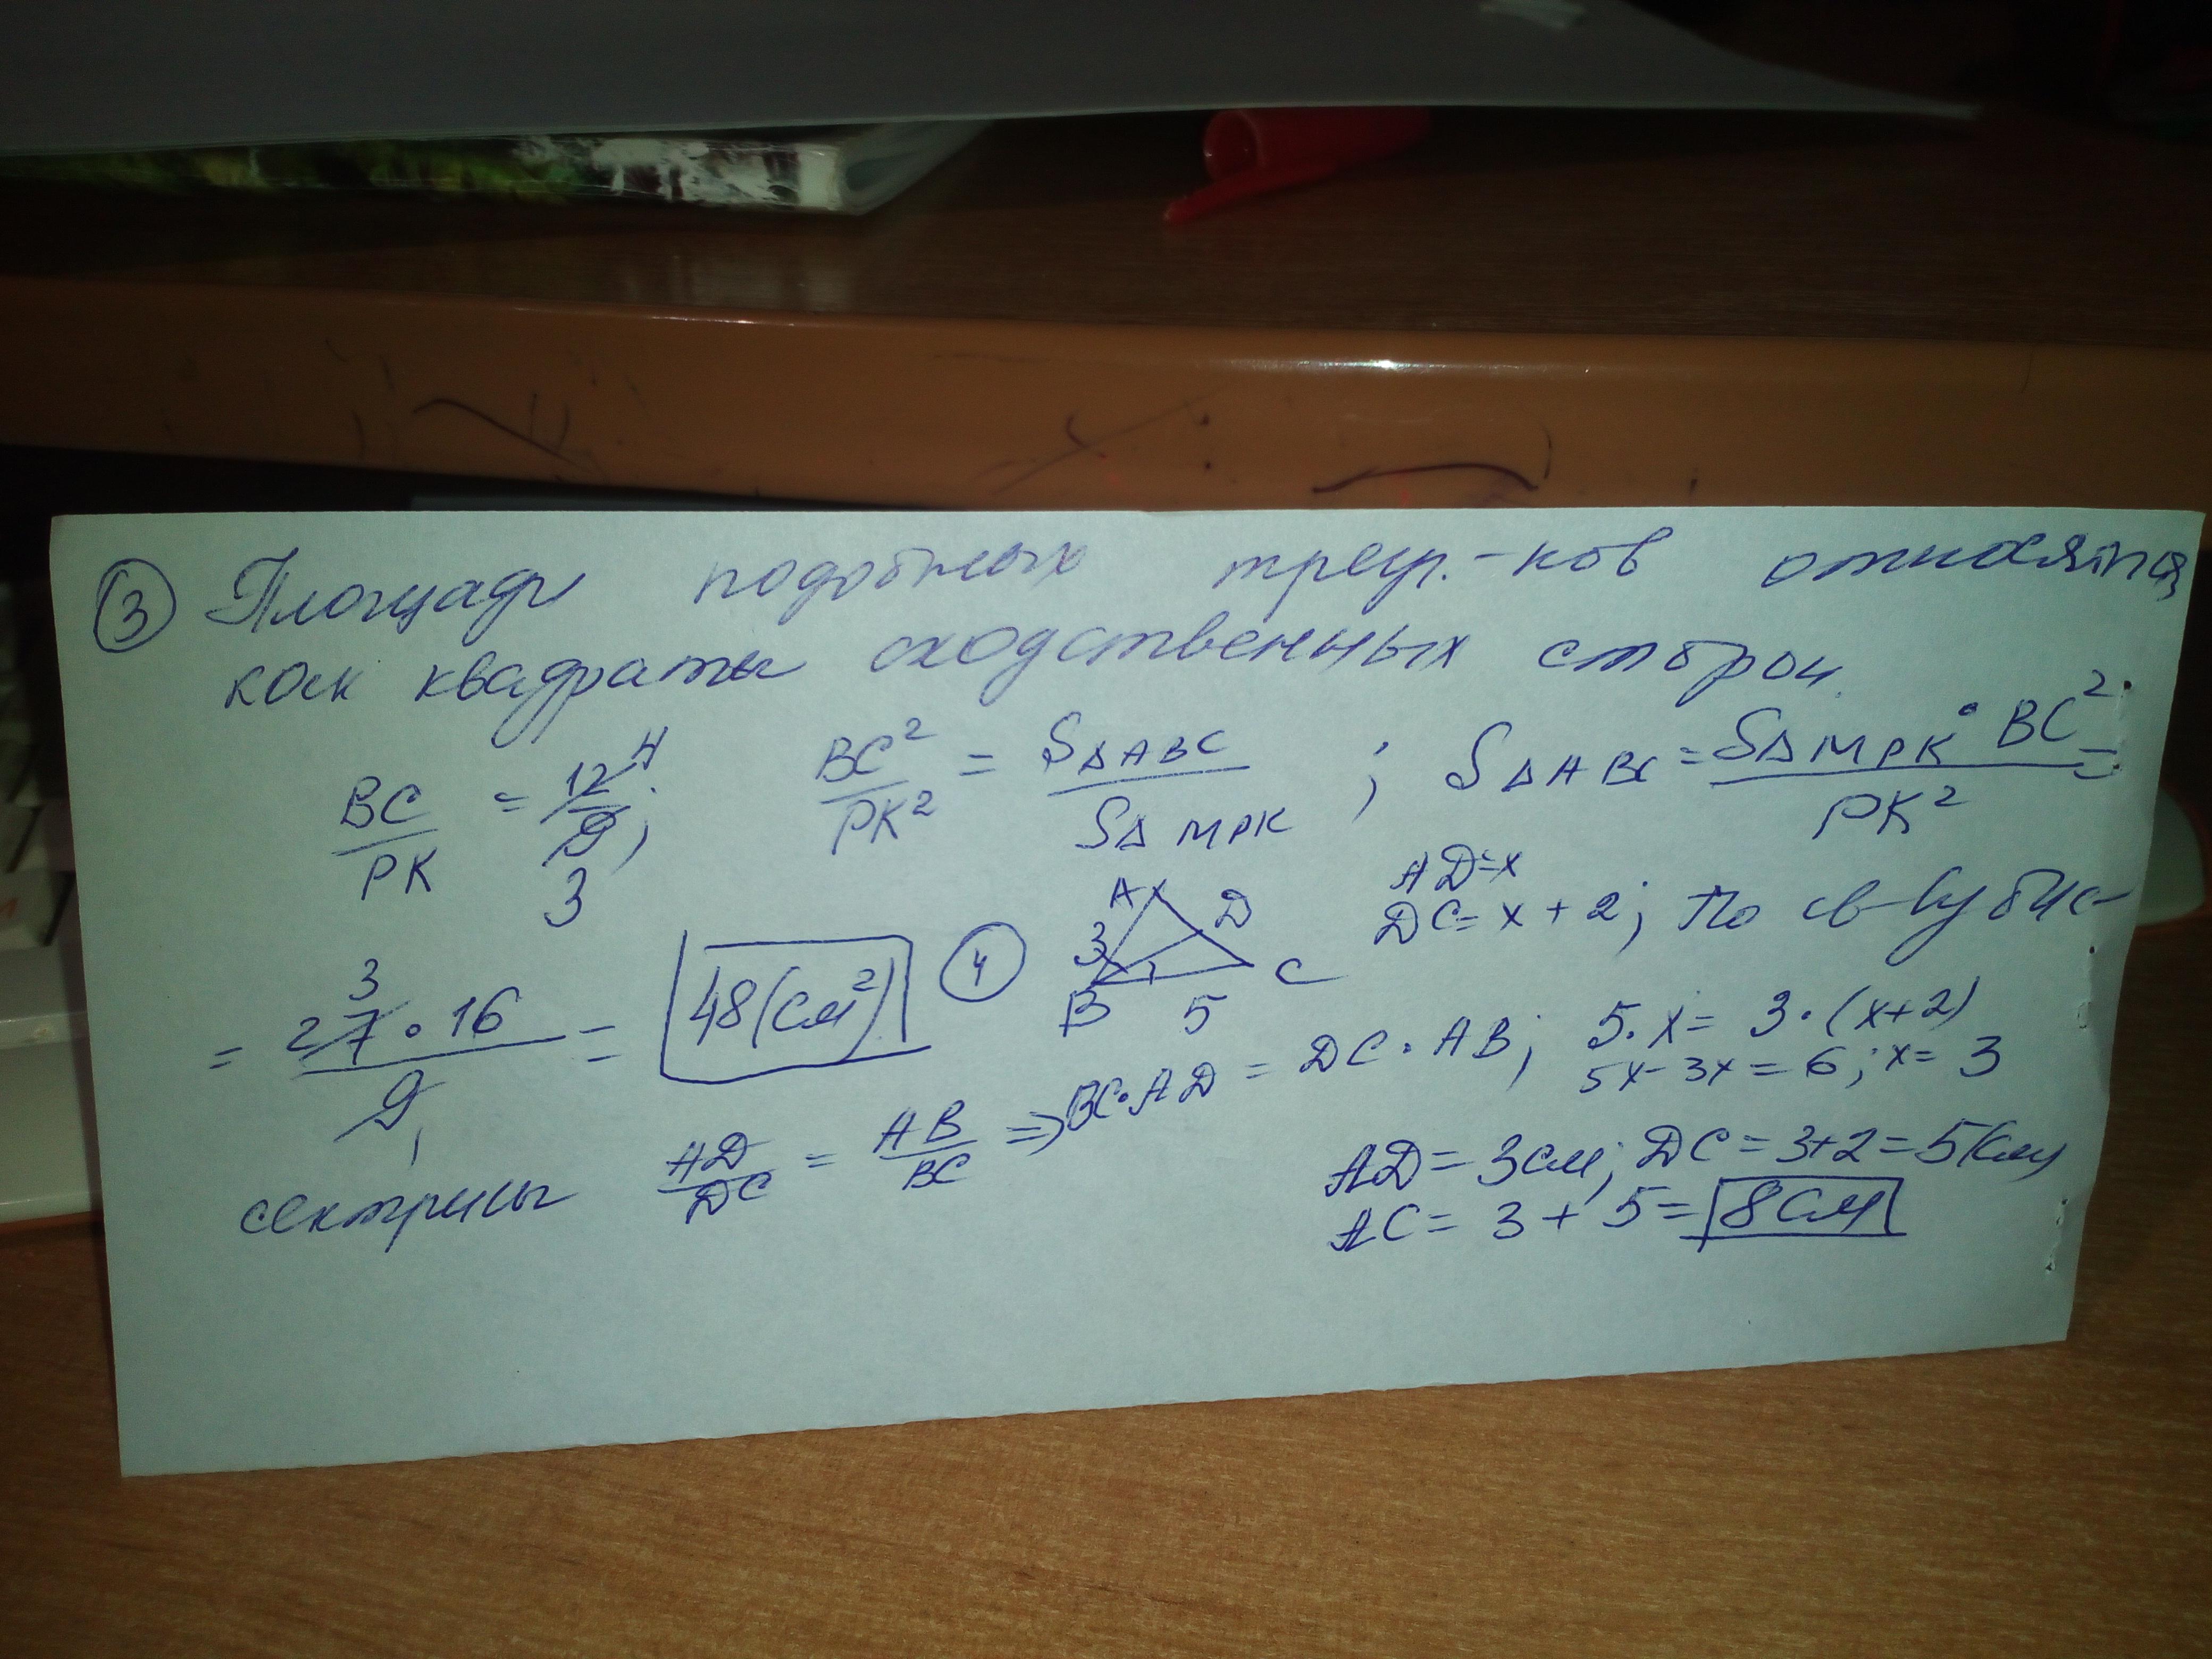 ③ Площади подобных треуг.-ков относятся
как квадраты сходственных сторон.
BC/PK = 12/9; 4 3 BC²/PK² = S△ABC/S△MPK; S△ABC = S△MPK • BC²/PK² =
= 27 • 16/9 = 48(см²) 3
④ A B C D 3 5
AD=x
DC=x+2; По св-ву бис-
сектрисы AD/DC = AB/BC => BC•AD = DC•AB; 5•x = 3•(x+2)
5x-3x=6; x=3
AD=3см; DC=3+2=5(см)
AC=3+5=8см